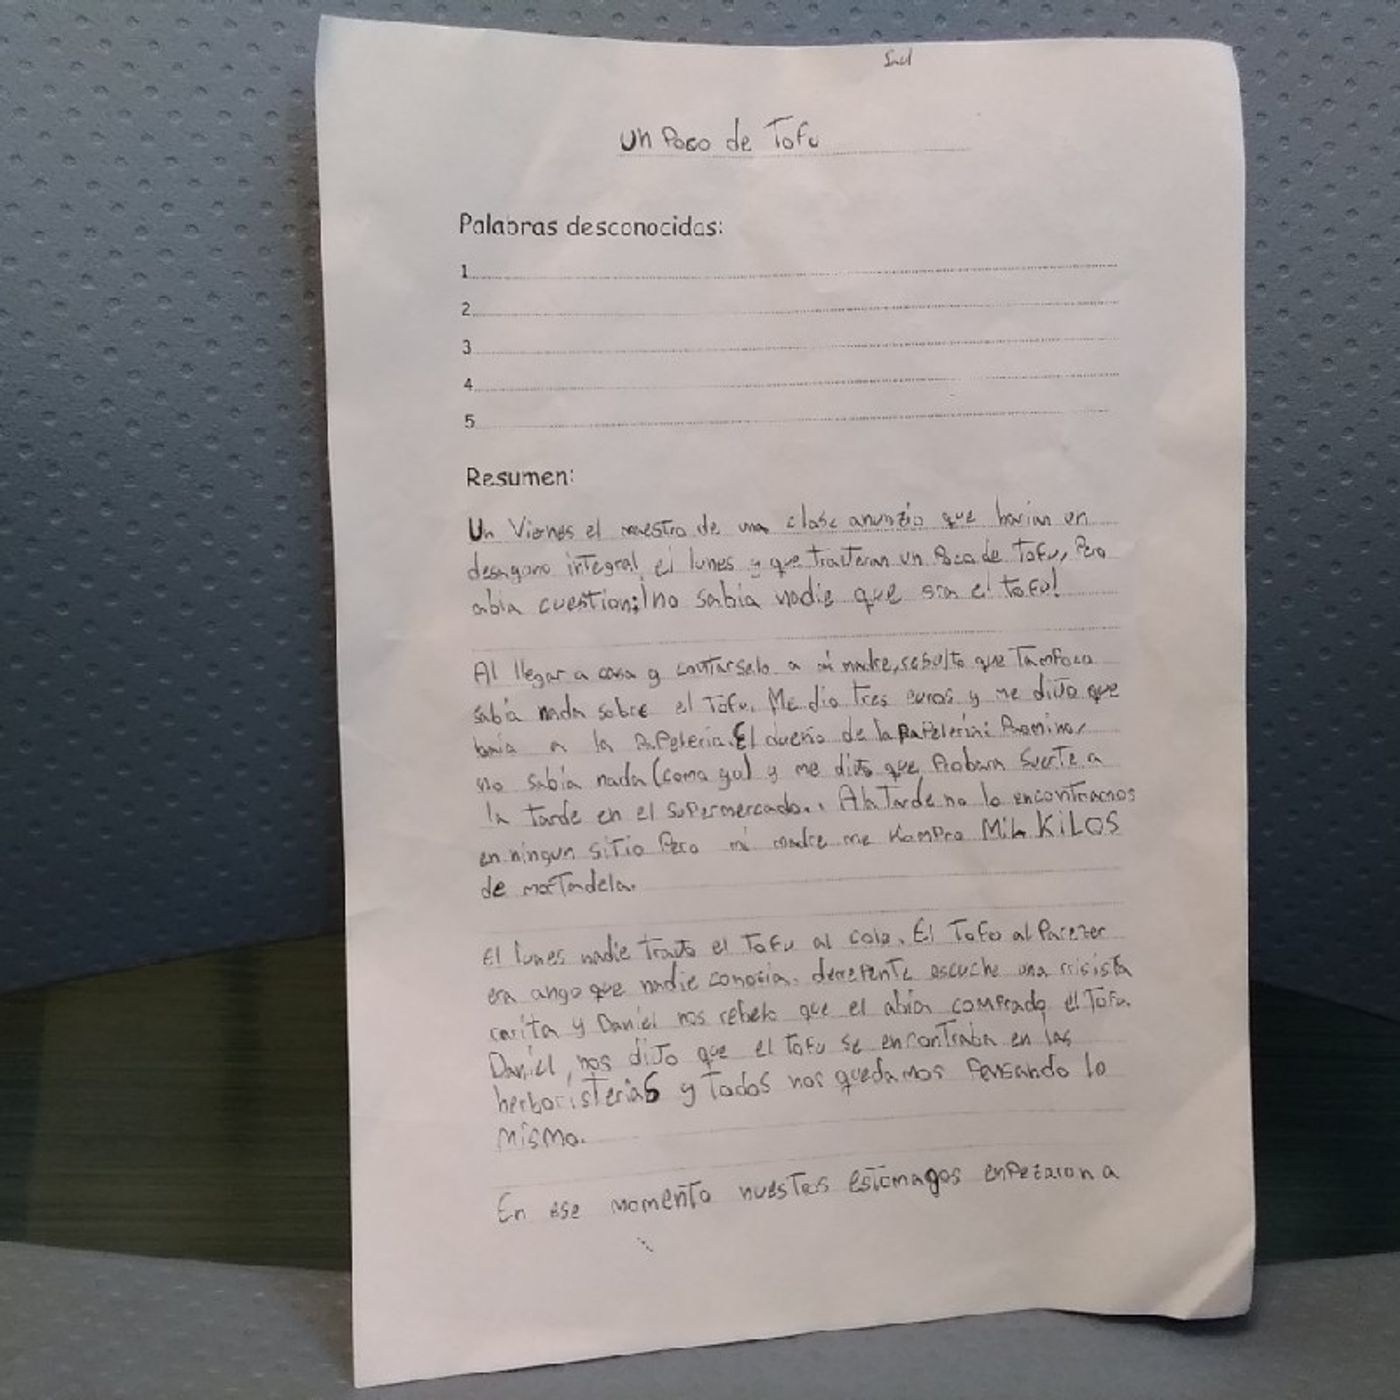 Un Poco de Tofu
Palabras desconocidas:
1
2
3
4
5
Resumen:
Un Viernes el maestro de una clase anunzio que harian un
desayuno integral el lunes y que trajteran un Poco de Tofu, Pero
abia cuestion; ¡no sabia nadie que era el tofu!
Al llegar a casa y contarselo a mi madre, resulto que Tampoco
sabia nada sobre el Tofu. Me dio tres euros y me dijo que
a la Papeleria. El dueño de la Papeleria:
no sabia nada (como yo) y me dijo que Probara Suerte a
la tarde en el supermercado. A la Tarde no lo encontramos
en ningun sitio Pero mi madre me KomPro MiL KiLOS
de morTadela.
El lunes nadie trajo el Tofu al cole. El Tofu al Parezer
era ango que nadie conosia. derrepente escuche una rrisista
y Daniel nos rebelo que el abia comprado el Tofu.
Daniel, nos dijo que el tofu se encontraba en las
herboristerias y Todos nos quedamos Pensando lo
mismo.
En ese momento nuestros estomagos enPezaron a